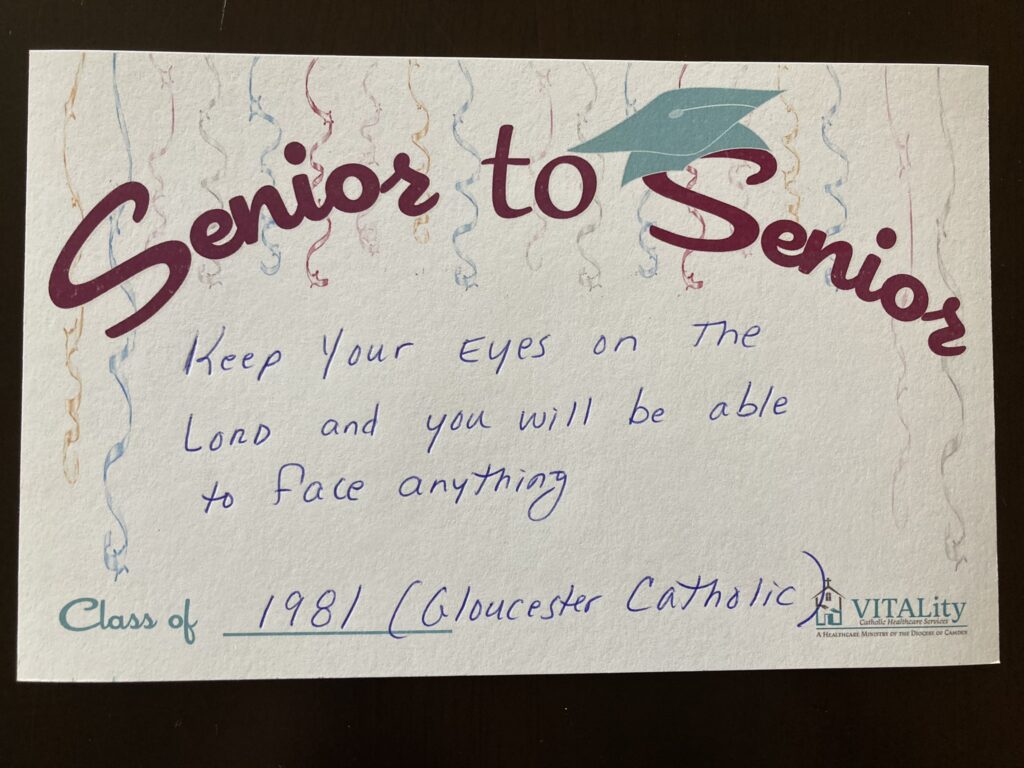 Senior to Senior
Keep Your Eyes on The
Lord and you will be able
to face anything
Class of 1981 (Gloucester Catholic)
VITALity
Catholic Healthcare Services
A Healthcare Ministry of the Diocese of Camden